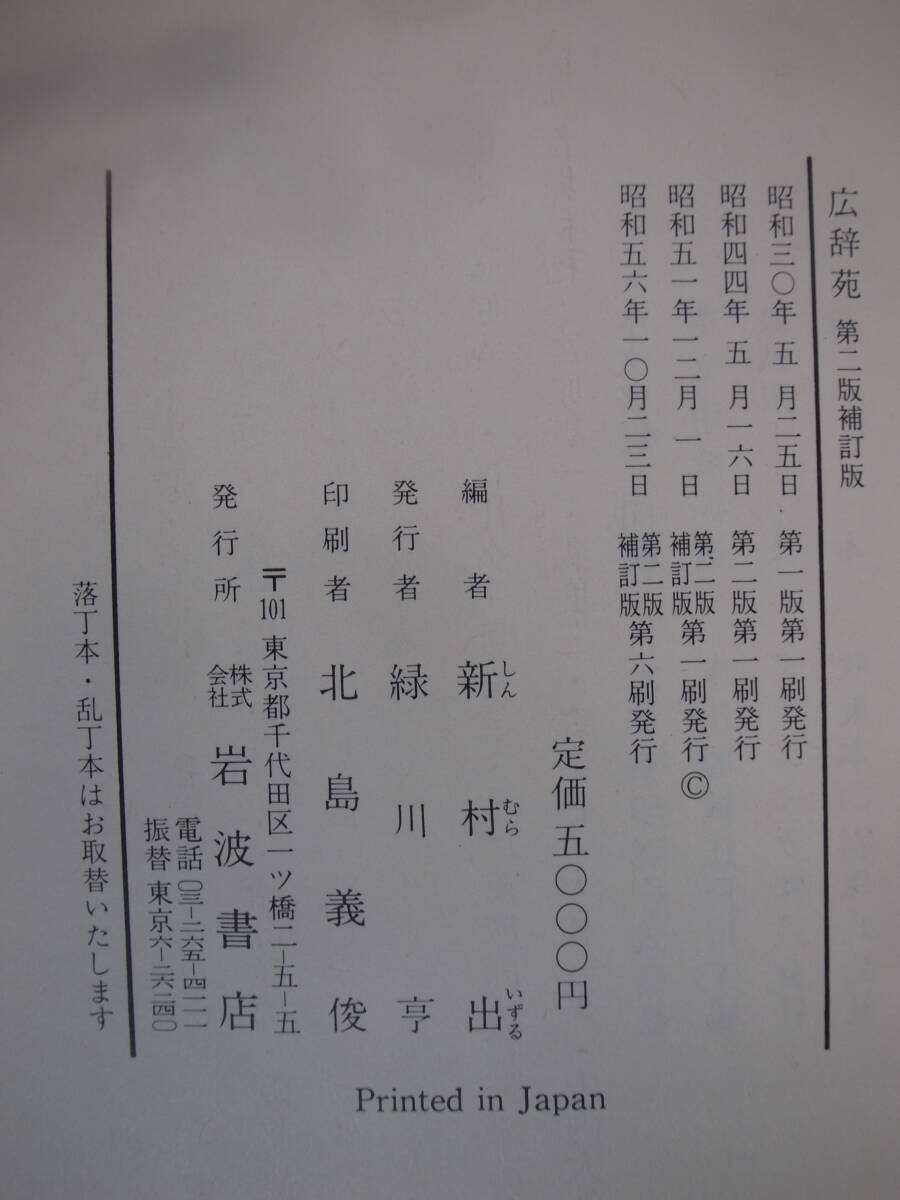 広辞苑 第二版補訂版
昭和三〇年 五 月二五日 第一版第一刷発行
昭和四四年 五 月一六日 第二版第一刷発行
昭和五一年一二月 一 日 第二版補訂版第一刷発行 ©
昭和五六年一〇月二三日 第二版補訂版第六刷発行
定価 五〇〇〇円
編者 新村出
しん むら いずる
発行者 緑川亨
印刷者 北島義俊
〒101 東京都千代田区一ツ橋二-五-五
発行所 株式会社 岩波書店
電話 〇三-二六五-四一一一
振替 東京六-二六二四〇
落丁本・乱丁本はお取替いたします
Printed in Japan